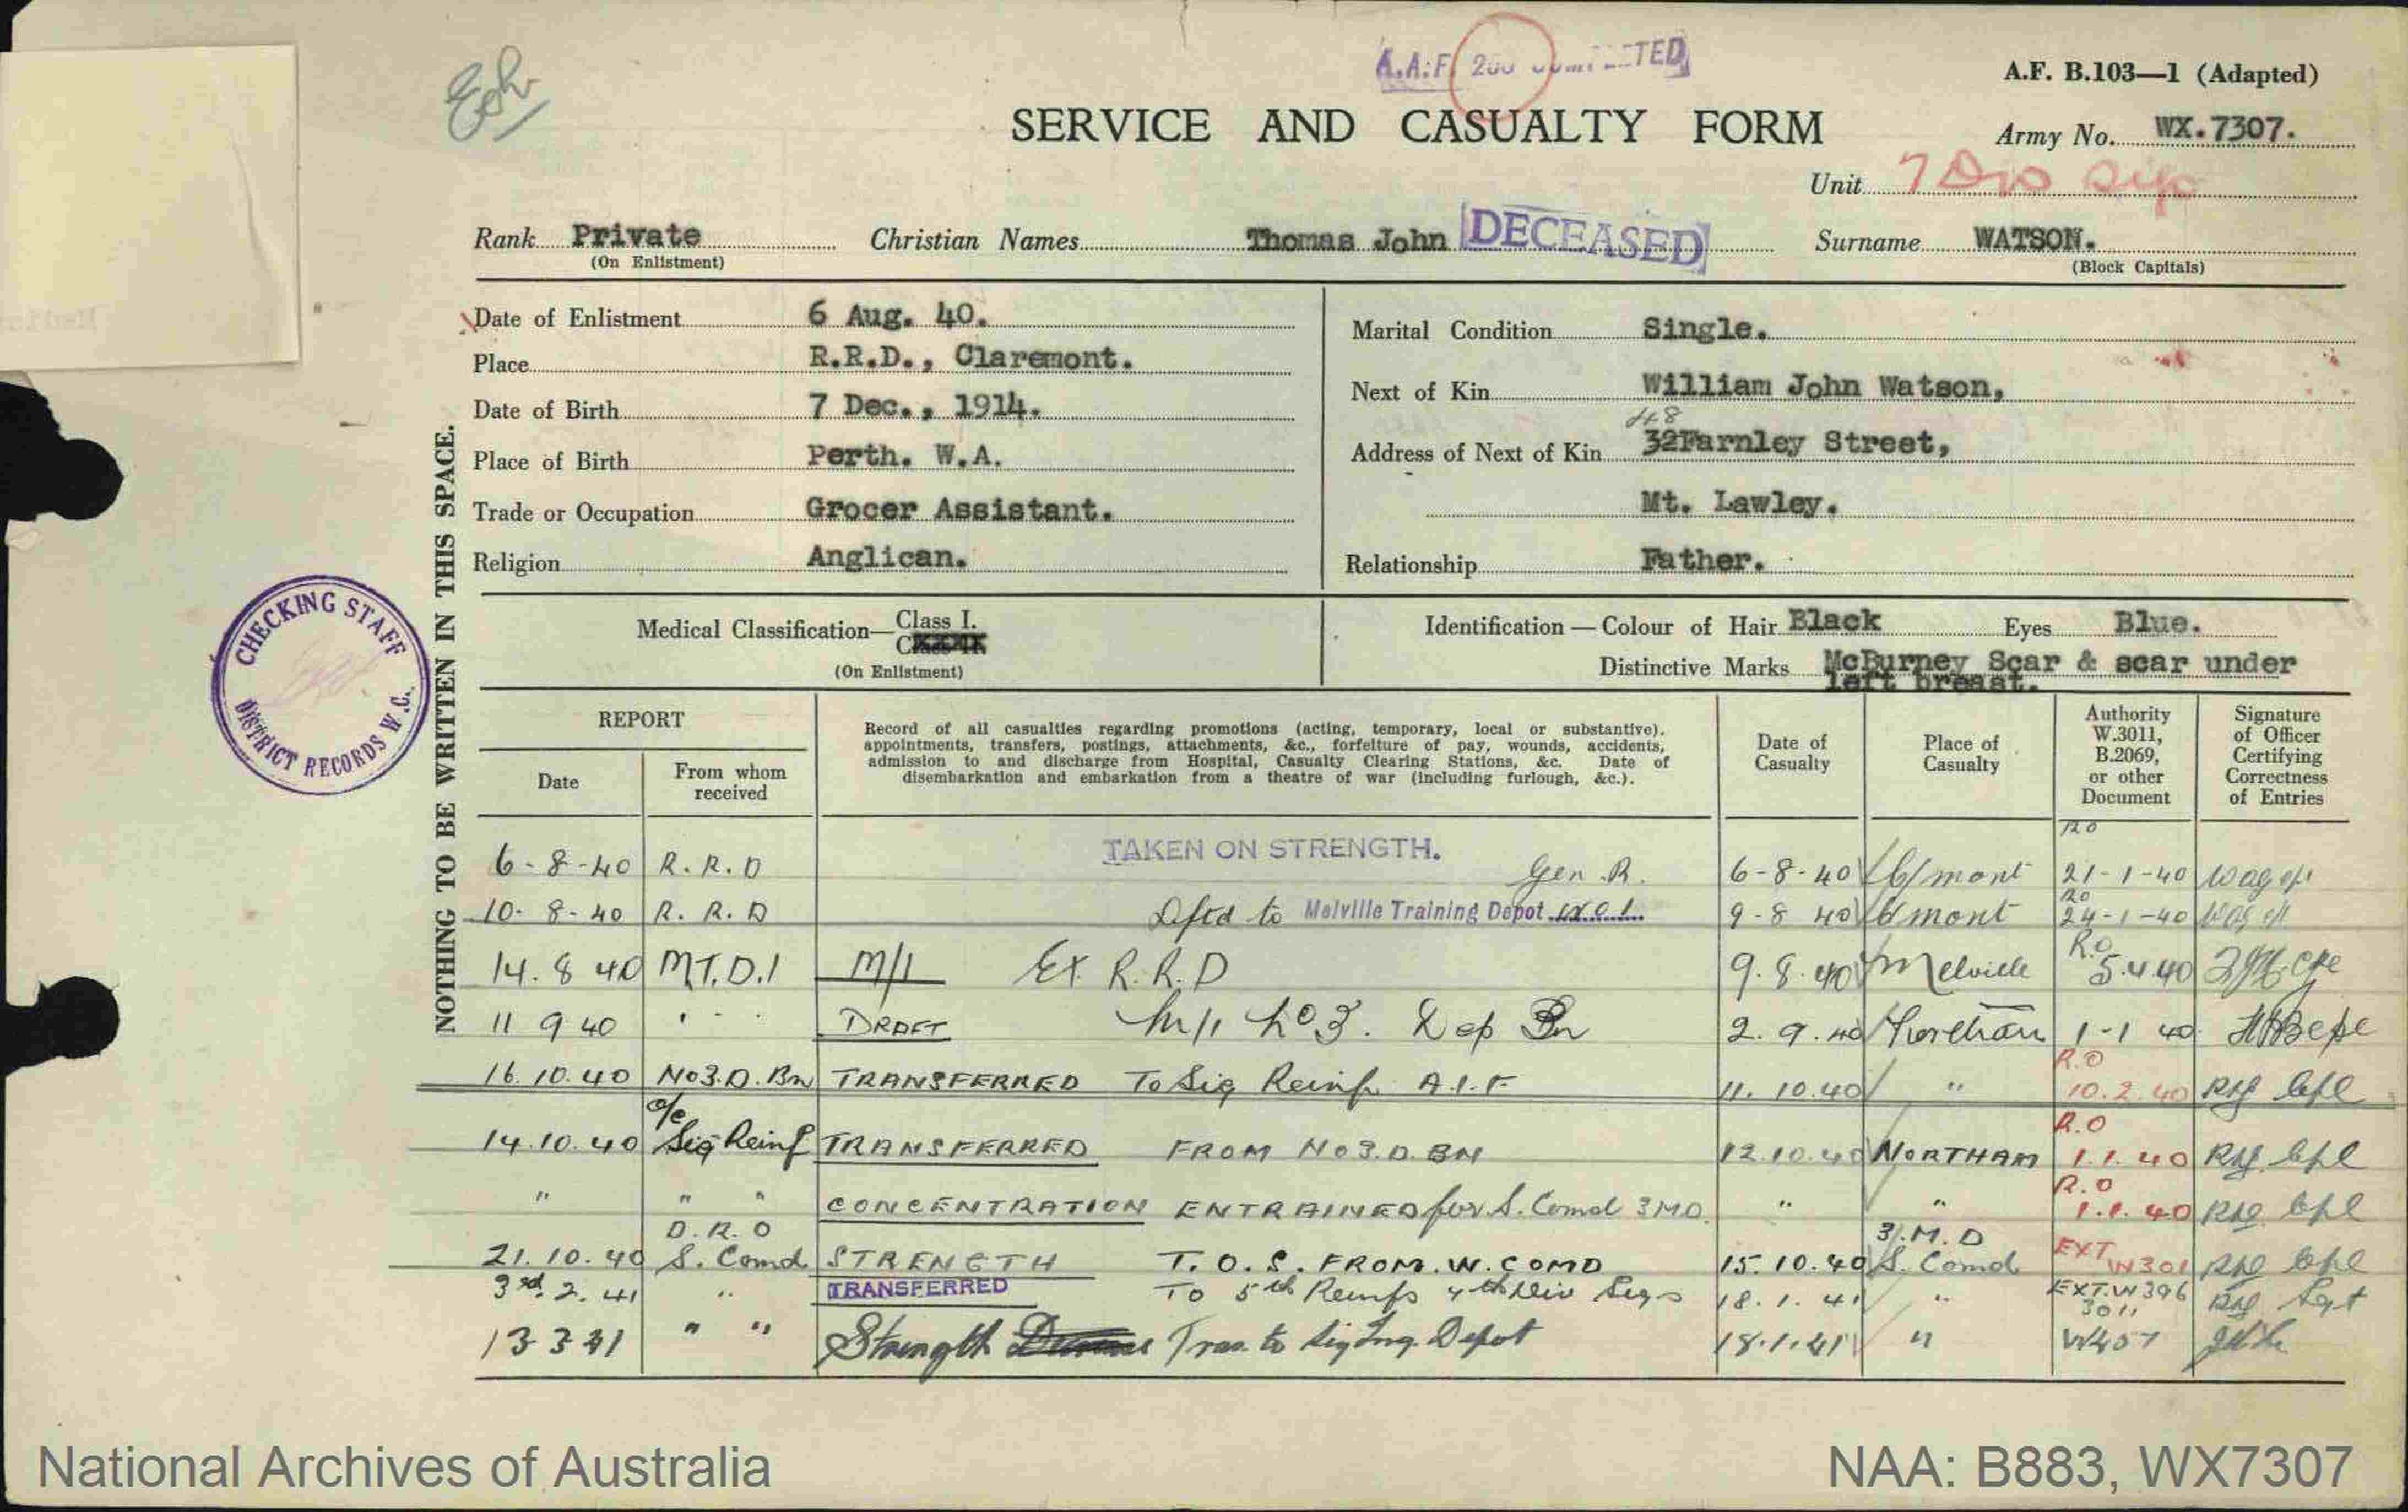 A.A.F. 200 COMPLETED
A.F. B.103—1 (Adapted)
SERVICE AND CASUALTY FORM
Army No. WX.7307.
Unit 7 Div Sigs
Rank Private Christian Names Thomas John DECEASED Surname WATSON.
(On Enlistment) (Block Capitals)
Date of Enlistment 6 Aug. 40.
Place R.R.D., Claremont.
Date of Birth 7 Dec., 1914.
Place of Birth Perth. W.A.
Trade or Occupation Grocer Assistant.
Religion Anglican.
Marital Condition Single.
Next of Kin William John Watson,
48
Address of Next of Kin 32Farnley Street,
Mt. Lawley.
Relationship Father.
Medical Classification— Class I.
(On Enlistment)
Identification — Colour of Hair Black Eyes Blue.
Distinctive Marks McBurney Scar & scar under
left breast.
NOTHING TO BE WRITTEN IN THIS SPACE.
CHECKING STAFF
DISTRICT RECORDS W.C.
REPORT
Date
From whom
received
Record of all casualties regarding promotions (acting, temporary, local or substantive).
appointments, transfers, postings, attachments, &c., forfeiture of pay, wounds, accidents,
admission to and discharge from Hospital, Casualty Clearing Stations, &c. Date of
disembarkation and embarkation from a theatre of war (including furlough, &c.).
Date of
Casualty
Place of
Casualty
Authority
W.3011,
B.2069,
or other
Document
Signature
of Officer
Certifying
Correctness
of Entries
6-8-40 R.R.D TAKEN ON STRENGTH. Gen. R. 6-8-40 C/mont RO 21-1-40
10-8-40 R.R.D Dftd to Melville Training Depot No 1. 9-8 40 C/mont RO 24-1-40
14.8 40 M.T.D.1 M/I Ex R.R.D 9.8.40 Melville R.O 5.4.40
11 9 40 " - " DRAFT M/I No 3. Dep Bn 2.9.40 Northam 1-1 40
16.10.40 No3.D.Bn TRANSFERRED To Sig Reinf A.I.F 11.10.40 " R.O 10.2.40 Cpl
14.10.40 o/c Sig Reinf TRANSFERRED FROM No3.D.BN 12 10.40 NORTHAM R.O 1.1.40 Cpl
" " " CONCENTRATION ENTRAINED for S. Comd 3MD. " " R.O 1.1.40 Cpl
21.10.40 D.R.O S. Comd STRENGTH T.O.S. FROM. W. COMD 15.10.40 3/.M.D S. Comd EXT W301 Cpl
3rd. 2. 41 " TRANSFERRED To 5th Reinfs 7th Div Sigs 18.1.41 " EXT.W396 3011 Sgt
13 3 41 " " Strength Tras. to Sig Tng. Depot 18.1.41 " W457
National Archives of Australia
NAA: B883, WX7307